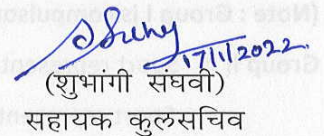 17/1/2022
(शुभांगी संघवी)
सहायक कुलसचिव